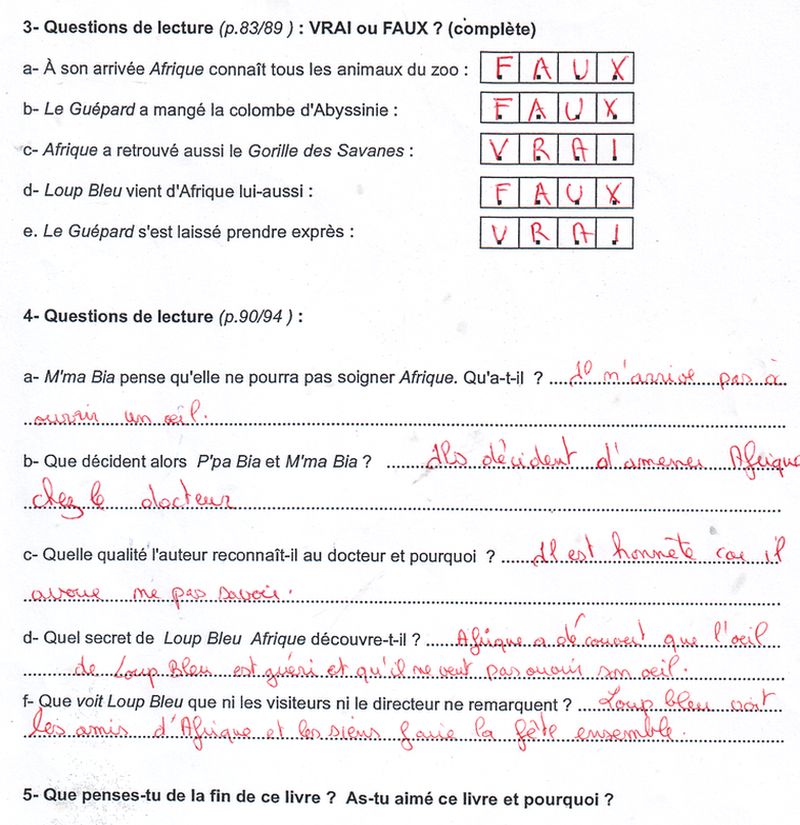 3- Questions de lecture (p.83/89 ) : VRAI ou FAUX ? (complète)
a- À son arrivée Afrique connaît tous les animaux du zoo : FAUX
b- Le Guépard a mangé la colombe d'Abyssinie : FAUX
c- Afrique a retrouvé aussi le Gorille des Savanes : VRAI
d- Loup Bleu vient d'Afrique lui-aussi : FAUX
e. Le Guépard s'est laissé prendre exprès : VRAI
4- Questions de lecture (p.90/94 ) :
a- M'ma Bia pense qu'elle ne pourra pas soigner Afrique. Qu'a-t-il ? .... Il n'arrive pas à
ouvrir un œil.
b- Que décident alors P'pa Bia et M'ma Bia ? ...... Ils décident d'amener Afrique
chez le docteur
c- Quelle qualité l'auteur reconnaît-il au docteur et pourquoi ? ..... Il est honnête car il
avoue ne pas savoir.
d- Quel secret de Loup Bleu Afrique découvre-t-il ? ..... Afrique a découvert que l'oeil
de Loup Bleu est guéri et qu'il ne veut pas ouvrir son oeil.
f- Que voit Loup Bleu que ni les visiteurs ni le directeur ne remarquent ? ... Loup bleu voit
les amis d'Afrique et les siens faire la fête ensemble.
5- Que penses-tu de la fin de ce livre ? As-tu aimé ce livre et pourquoi ?